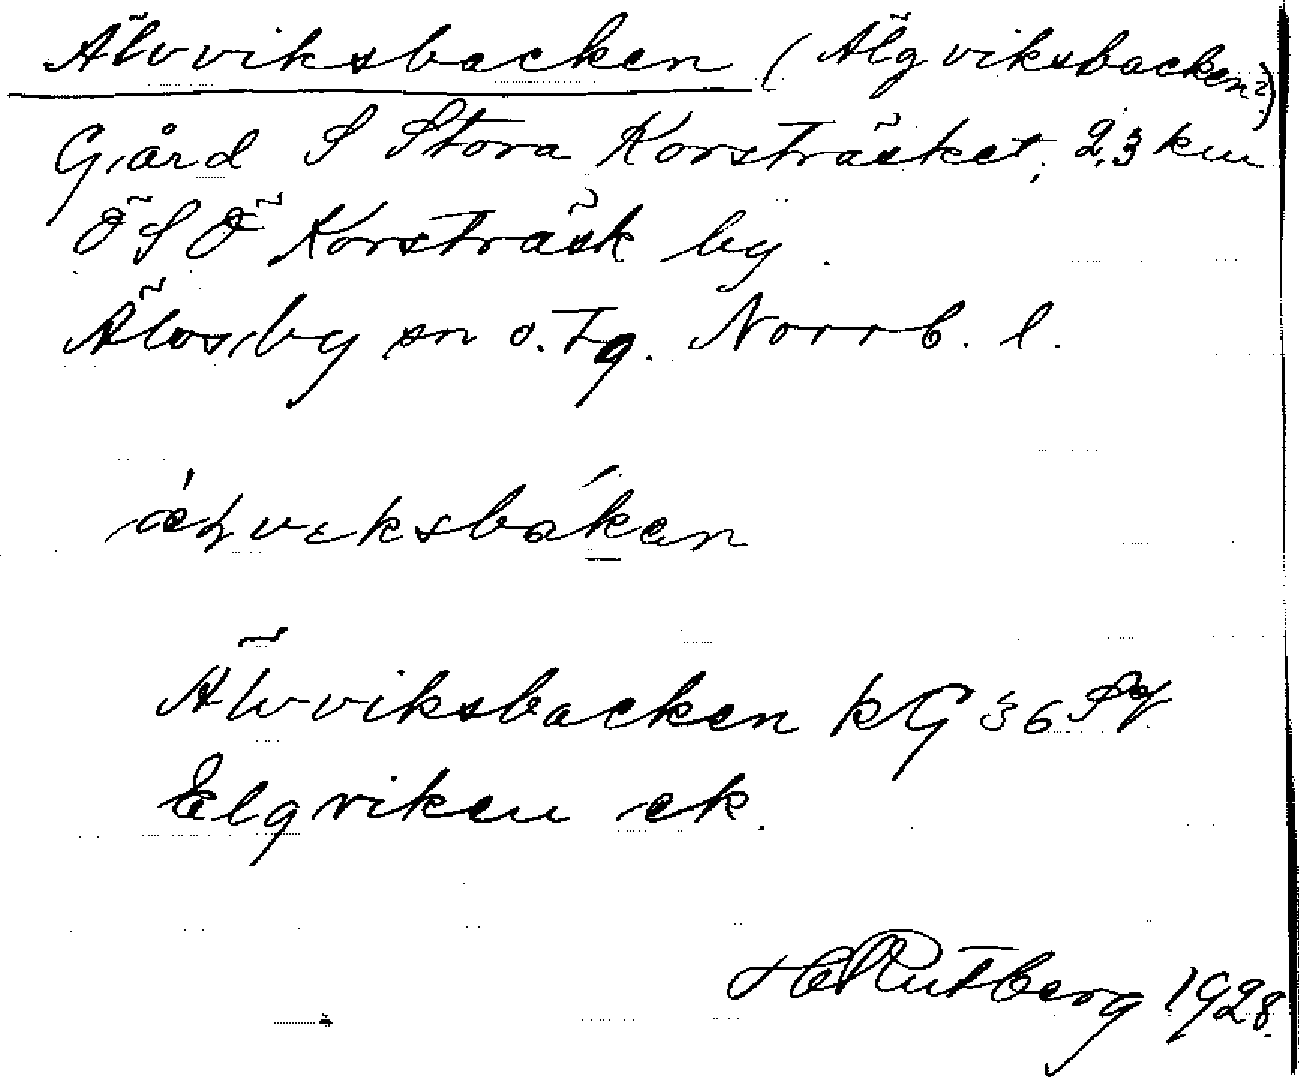 Älvviksbacken (Älgviksbacken?)
Gård S Stora Korsträsket, 2,3 km
ÖSÖ Korsträsk by.
Älvsby sn o. tg. Norrb. l.
Älvviksbacken kG 36
Elgviken ek.
H Rutberg 1928.